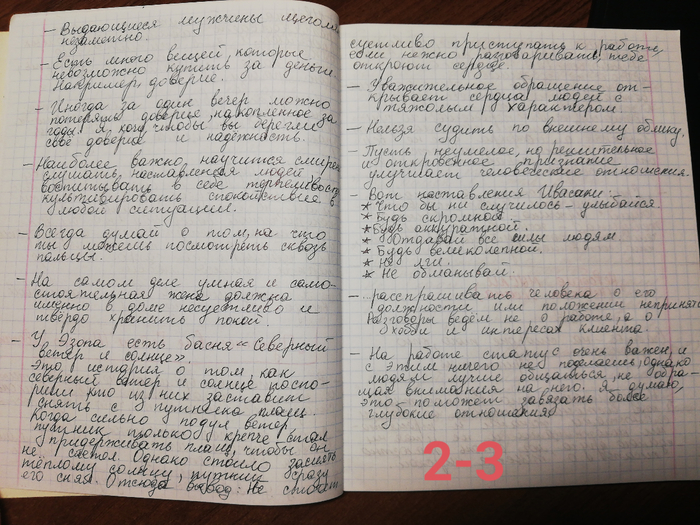 - Выдающиеся мужчины щеголи
незаметно.
- Есть много вещей, которые
невозможно купить за деньги.
Например, доверие.
- Иногда за один вечер можно
потерять доверие, накопленное за
годы. Я хочу, чтобы вы берегли
свое доверие и надежность.
- Наиболее важно научится смирен
слушать наставления людей
воспитывать в себе терпеливость
культивировать спокойствие в
любой ситуации.
- Всегда думай о том, на что
ты можешь посмотреть сквозь
пальцы.
- На самом деле умная и само-
стоятельная жена должна
именно в доме несуетливо и
твердо хранить покой.
- У Эзопа есть басня "Северный
ветер и солнце".
Это история о том, как
северный ветер и солнце поспо-
рили кто из них заставит
снять с путника плащ.
Когда сильно подул ветер,
путник только крепче стал
придерживать плащ, чтобы он
не слетел. Однако стоило засиять
тёплому солнцу, путник сразу
его снял. Отсюда вывод: Не стоит
суетливо приступать к работе,
если нежно разговаривать, тебе
откроют сердце.
- Уважительное обращение от-
крывает сердца людей с
тяжолым характером.
- Нельзя судить по внешнему облику.
- Пусть неумелое, но решительное
и откровенное признание
улучшает человеческие отношения.
- Вот наставления Ивасаки:
* Что бы не случилось - улыбайся.
* Будь скромной.
* Будь аккуратной.
* Отдавай все силы людям
* Будь великолепной.
* Не лги.
* Не обманывай.
- ..расспрашивать человека о его
должности или положении неприлич
Разговоры ведём не о работе, а о
хобби и интересах клиента.
- На работе статус очень важен, и
с этим ничего не поделаешь, однако
людям лучше общаться, не обра-
щая внимания на него. Я думаю,
это поможет завязать более
глубокие отношения.
2-3